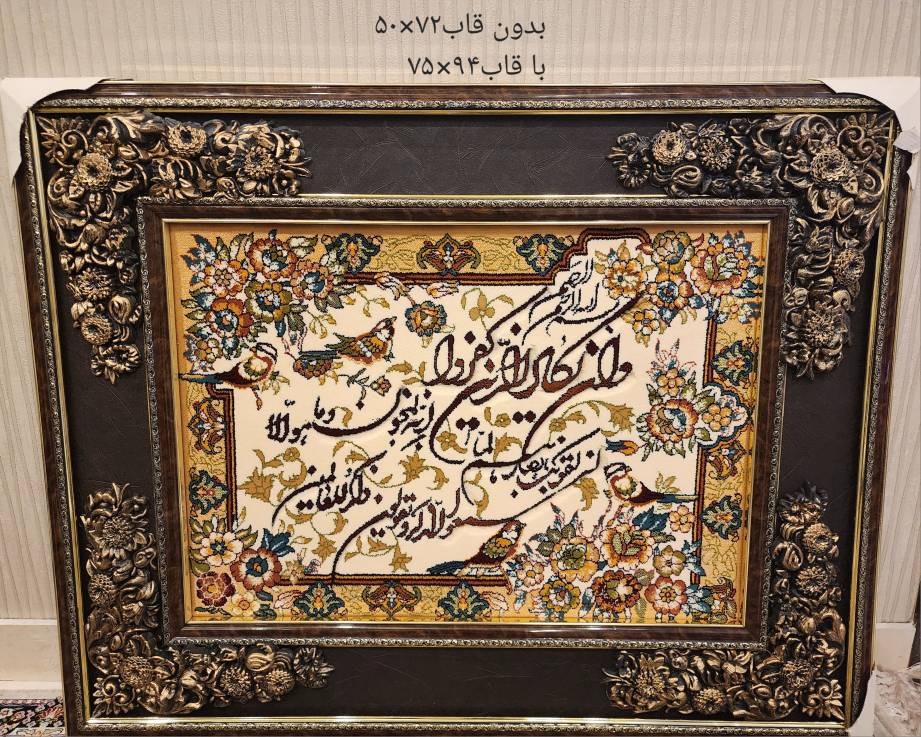 بدون قاب۷۲×۵۰
با قاب۹۴×۷۵
بسم الله الرحمن الرحیم
وان یکاد الذین کفروا
لیزلقونک بابصارهم لما
سمعوا الذکر ویقولون
انه لمجنون وما هو الا
ذکر للعالمین